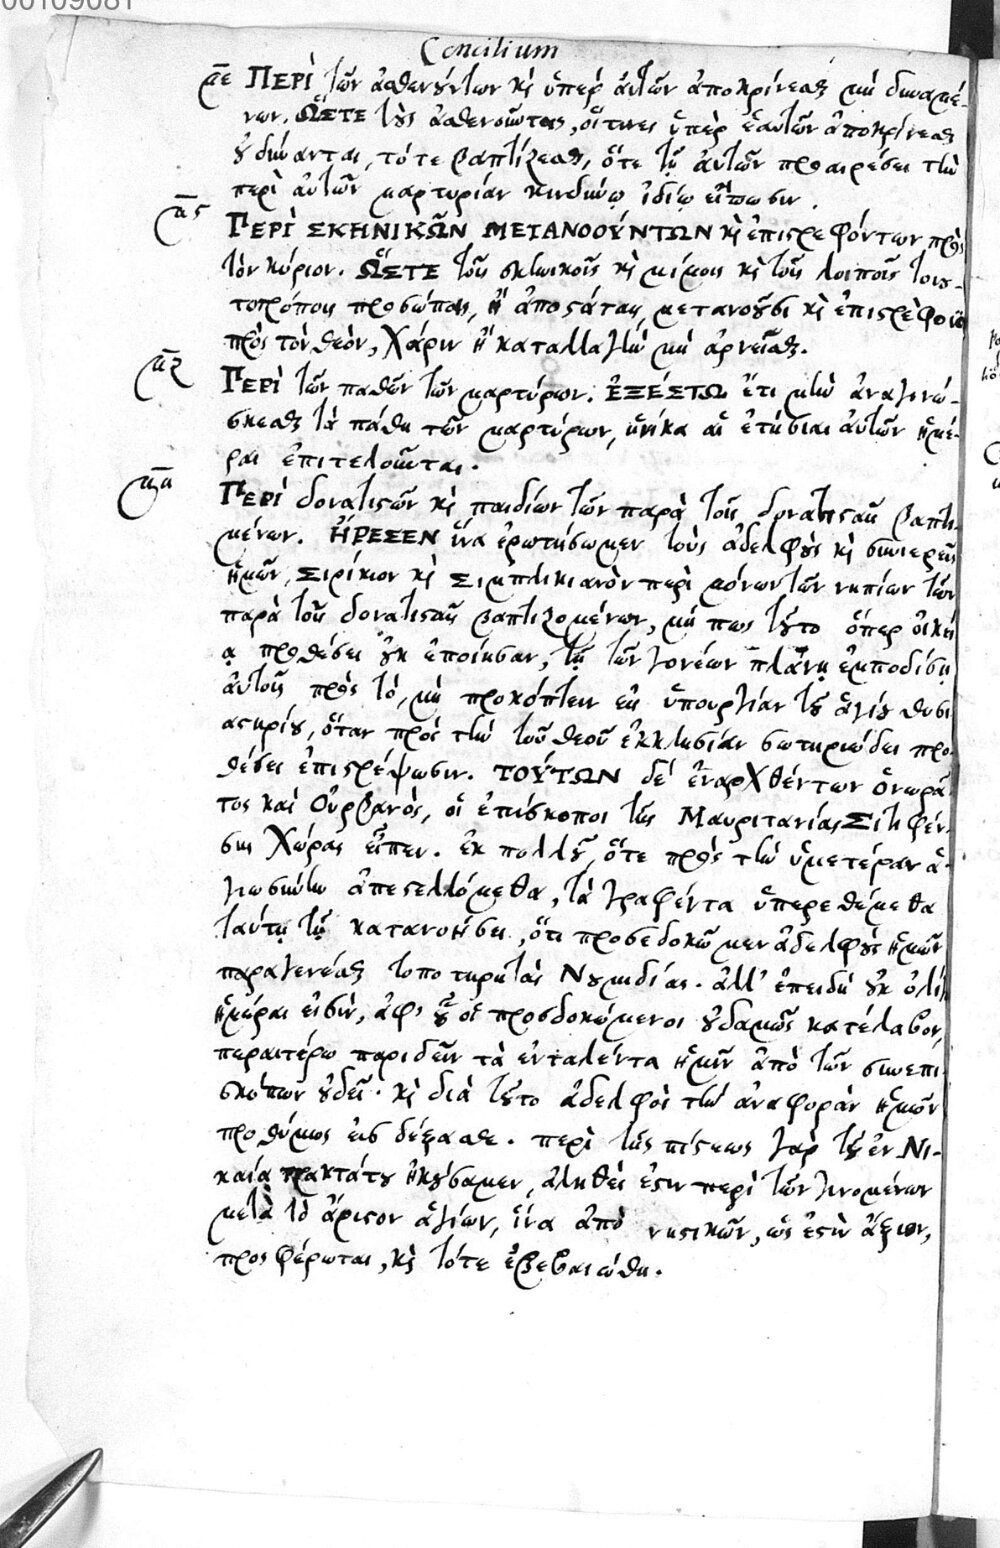 00109081
Concilium
με ΠΕΡῚ τῶν ἀσθενούντων καὶ ὑπὲρ αὐτῶν ἀποκρίνεσθαι μὴ δυναμέ-
νων. ὭΣΤΕ τοὺς ἀσθενοῦντας, οἵτινες ὑπὲρ ἑαυτῶν ἀποκρίνεσθαι
οὐ δύνανται, τότε βαπτίζεσθαι, ὅτε τῇ αὐτῶν προαιρέσει τὴν
περὶ αὐτῶν μαρτυρίαν κινδύνῳ ἰδίῳ εἴπωσιν.
μς ΠΕΡῚ ΣΚΗΝΙΚΩ͂Ν ΜΕΤΑΝΟΟΎΝΤΩΝ καὶ ἐπιστρεφόντων πρὸς
τὸν κύριον. ὭΣΤΕ τοῖς σκηνικοῖς καὶ μίμοις καὶ τοῖς λοιποῖς τοιου-
τοτρόποις προσώποις, ἢ ἀποστάταις, μετανοοῦσι καὶ ἐπιστρέφουσι
πρὸς τὸν θεὸν, χάριν ἢ καταλλαγὴν μὴ ἀρνεῖσθαι.
μζ ΠΕΡῚ τῶν παθῶν τῶν μαρτύρων. ἘΞΈΣΤΩ ἔτι μὴν ἀναγινώ-
σκεσθαι τὰ πάθη τῶν μαρτύρων, ἡνίκα αἱ ἐτήσιαι αὐτῶν ἡμέ-
ραι ἐπιτελοῦνται.
μη ΠΕΡῚ δονατιστῶν καὶ παιδίων τῶν παρὰ τοῖς δονατισταῖς βαπτι-
μένων. ἬΡΕΣΕΝ ἵνα ἐρωτήσωμεν τοὺς ἀδελφοὺς καὶ συνιερεῖς
ἡμῶν, Σιρίκιον καὶ Σιμπλικιανὸν περὶ μόνων τῶν νηπίων τῶν
παρὰ τοῖς δονατισταῖς βαπτιζομένων, μή πως τοῦτο ὅπερ οἰκεί
ᾳ προθέσει οὐκ ἐποίησαν, τῇ τῶν γονέων πλάνῃ ἐμποδίσῃ
αὐτοῖς πρὸς τὸ, μὴ προκόπτειν εἰς ὑπουργίαν τοῦ ἁγίου θυσι
αστηρίου, ὅταν πρὸς τὴν τοῦ θεοῦ ἐκκλησίαν σωτηριώδει προ-
θέσει ἐπιστρέψωσιν. ΤΟΎΤΩΝ δὲ ἐναρχθέντων ὁνωρά
τος καὶ Οὐρβανὸς, οἱ ἐπίσκοποι τῆς Μαυριτανίας Σιτιφέν-
σης χώρας εἶπεν. ἐκ πολλοῦ, ὅτε πρὸς τὴν ὑμετέραν ἁ-
γιωσύνην ἀπεστελλόμεθα, τὰ γραφέντα ὑπερεθέμεθα
ταύτῃ τῇ κατανοήσει, ὅτι προσεδοκῶμεν ἀδελφοὺς ἡμῶν
παραγενέσθαι τοποτηρητὰς Νουμιδίας. ἀλλ' ἐπειδὴ οὐκ ὀλίγ
ἡμέραι εἰσὶν, ἀφ' οὗ οἱ προσδοκώμενοι οὐδαμῶς κατέλαβον,
περαιτέρω παριδεῖν τὰ ἐνταλέντα ἡμῖν ἀπὸ τῶν συνεπι
σκόπων οὐ δεῖ. καὶ διὰ τοῦτο ἀδελφοὶ τὴν ἀναφορὰν ἡμῶν
προθύμως εἰσδέξασθε. περὶ τῆς πίστεως γὰρ τοῦ ἐν Νι-
καίᾳ τρακτάτου ἠκούσαμεν, ἀληθές ἐστιν περὶ τῶν γινομένων
μετὰ τὸ ἄριστον ἁγίων, ἵνα ἀπὸ νηστικῶν, ὡς ἐστὶν ἄξιον,
προσφέρωται, καὶ τότε ἐβεβαιώθη.